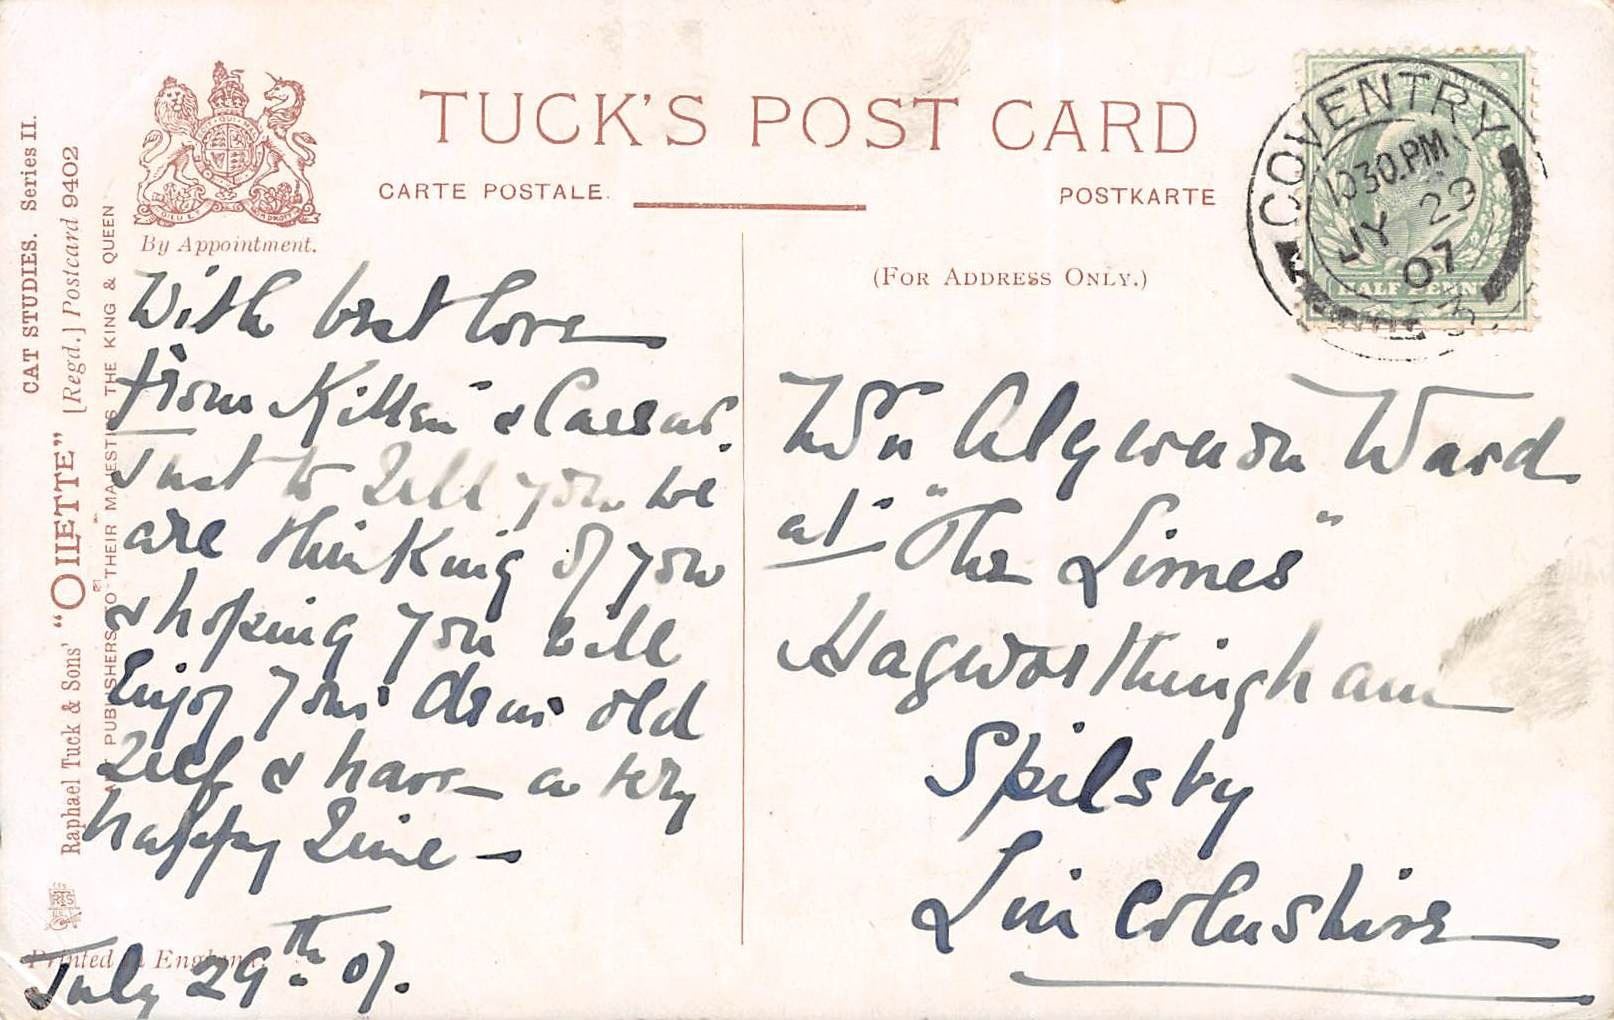 CAT STUDIES. Series II.
Raphael Tuck & Sons' "OILETTE" [Regd.] Postcard 9402
PUBLISHERS TO THEIR MAJESTIES THE KING & QUEEN
By Appointment.
TUCK'S POST CARD
CARTE POSTALE.
POSTKARTE
(FOR ADDRESS ONLY.)
COVENTRY
10 30. PM
JY 29
07
HALF PENNY
With best love
from Kitten & Caesar.
Just to tell you we
are thinking of you
& hoping you will
enjoy your dear old
self & have a very
happy time –
July 29th. 07.
Printed in England.
Algernon Ward
at "The Limes"
Hagworthingham
Spilsby
Lincolnshire